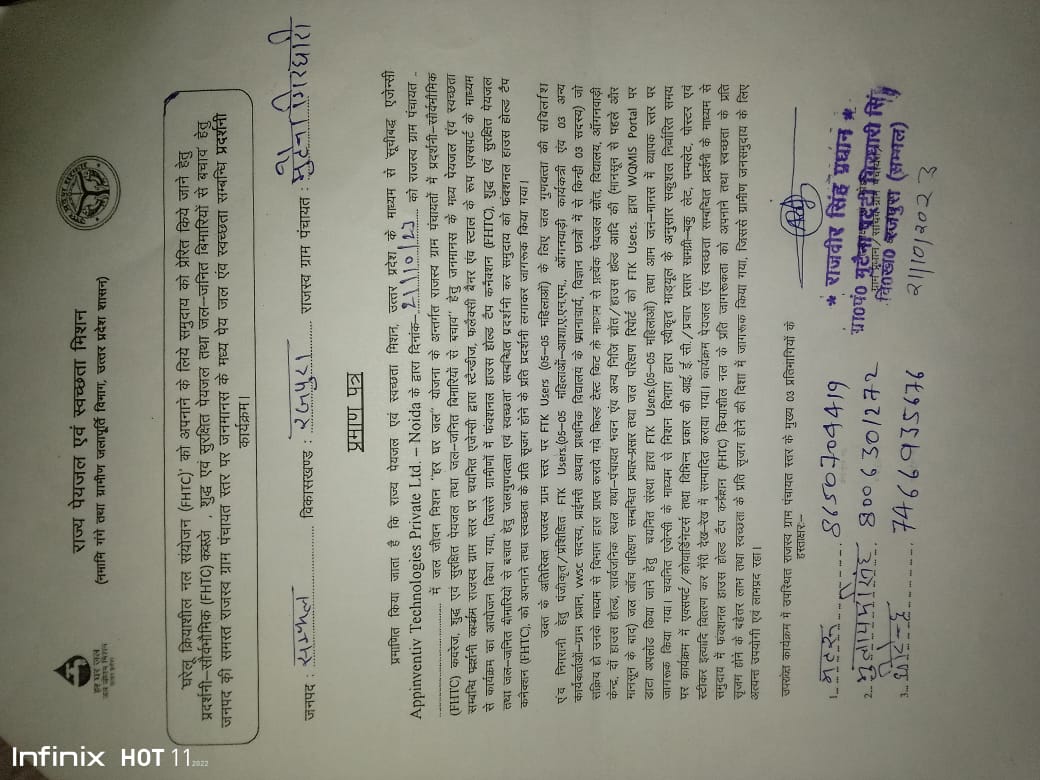 राज्य पेयजल एवं स्वच्छता मिशन
(नमामि गंगे तथा ग्रामीण जलापूर्ति विभाग, उत्तर प्रदेश शासन)
हर घर जल
जल जीवन मिशन
घरेलू क्रियाशील नल संयोजन (FHTC)' को अपनाने के लिये समुदाय को प्रेरित किये जाने हेतु
प्रदर्शनी–सौर्वभौमिक (FHTC) कवरेज, शुद्ध एवं सुरक्षित पेयजल तथा जल–जनित बिमारियों से बचाव हेतु
जनपद की समस्त राजस्व ग्राम पंचायत स्तर पर जनमानस के मध्य पेय जल एंव स्वच्छता सम्बन्धि प्रदर्शनी
कार्यक्रम।
जनपद : सम्भल विकासखण्ड : रजपुरा राजस्व ग्राम पंचायत :
प्रमाण पत्र
प्रमाणित किया जाता है कि राज्य पेयजल एवं स्वच्छता मिशन, उत्तर प्रदेश के माध्यम से सूचीबद्ध एजेन्सी
Appinventiv Technologies Private Ltd. – Noida के द्वारा दिनांक- 21/10/23 को राजस्व ग्राम पंचायत -
में जल जीवन मिशन "हर घर जल" योजना के अन्तर्गत राजस्व ग्राम पंचायतों में प्रदर्शनी–सौर्वभौमिक
(FHTC) कवरेज, शुद्ध एवं सुरक्षित पेयजल तथा जल–जनित बिमारियों से बचाव" हेतु जनमानस के मध्य पेयजल एंव स्वच्छता
सम्बन्धि प्रदर्शनी कार्यक्रम राजस्व ग्राम स्तर पर चयनित एजेन्सी द्वारा स्टेन्डीज, फलैक्सी बैनर एंव स्टाल के रूप एक्सपर्ट के माध्यम
से कार्यक्रम का आयोजन किया गया, जिससे ग्रामीणों में फंक्शनल हाउस होल्ड टैप कनैक्शन (FHTC), शुद्ध एवं सुरक्षित पेयजल
तथा जल–जनित बीमारियों से बचाव हेतु जलगुणवत्ता एवं स्वच्छता' सम्बन्धित प्रदर्शनी कर समुदाय को फंक्शनल हाउस होल्ड टैप
कनैक्शन (FHTC), को अपनाने तथा स्वच्छता के प्रति सृजग होने के प्रति प्रदर्शनी लगाकर जागरूक किया गया।
उक्त के अतिरिक्त राजस्व ग्राम स्तर पर FTK Users (05–05 महिलाओं) के लिए जल गुणवत्ता की
एंव निगरानी हेतु पंजीकृत/प्रशिक्षित FTK Users.(05–05 महिलाओं–आशा,ए.एन.एम., ऑगनवाड़ी कार्यकत्री एंव 03 अन्य
कार्यकर्ताओं–ग्राम प्रधान, vwsc सदस्य, प्राईमरी अथवा प्राथमिक विद्यालय के प्रधानाचार्य, विज्ञान छात्रों में से किन्ही 03 सदस्य) जो
सक्रिय हो उनके माध्यम से विभाग द्वारा प्राप्त कराये गये फिल्ड टैस्ट किट के माध्यम से प्रत्येक पेयजल स्रोत, विद्यालय, ऑगनवाड़ी
केन्द्र, दो हाउस होल्ड, सार्वजनिक स्थल यथा–पंचायत भवन एंव अन्य निजि स्रोत/हाउस होल्ड आदि की (मानसून से पहले और
मानसून के बाद) जल जॉच परिक्षण सम्बन्धित प्रचार–प्रसार तथा जल परिक्षण रिपोर्ट को FTK Users. द्वारा WQMIS Portal पर
डाटा अपलोड किया जाने हेतु चयनित संस्था द्वारा FTK Users.(05–05 महिलाओं) तथा आम जन–मानस में व्यापक स्तर पर
जागरूक किया गया। चयनित एजेन्सी के माध्यम से मिशन विभाग द्वारा स्वीकृत माड्यूल के अनुसार सकुशल निर्धारित समय
पर कार्यक्रम में एक्सपर्ट/कोआर्डिनेटर्स तथा विभिन्न प्रकार की आई. ई. सी./प्रचार प्रसार सामग्री–बुकलेट, पम्पलेट, पोस्टर एवं
स्टीकर इत्यादि वितरण कर मेरी देख–रेख में सम्पादित कराया गया। कार्यक्रम पेयजल एंव स्वच्छता सम्बन्धित प्रदर्शनी के माध्यम से
समुदाय में फंक्शनल हाउस होल्ड टैप कनैक्शन (FHTC) कियाशील नल के प्रति जागरूकता को अपनाने तथा स्वच्छता के प्रति
सृजग होने के बेहतर लाभ तथा स्वच्छता के प्रति सृजग होने की दिशा में जागरूक किया गया, जिससे ग्रामीण जनसमुदाय के लिए
अत्यन्त उपयोगी एवं लाभप्रद रहा।
उपरोक्त कार्यक्रम में उपस्थित राजस्व ग्राम पंचायत स्तर के मुख्य 03 प्रतिभागियों के
हस्ताक्षरः-
1. 8650704419
2. 8006301272
3. 7466935676
* राजवीर सिंह प्रधान *
21/10/2023
Infinix HOT 11 2022